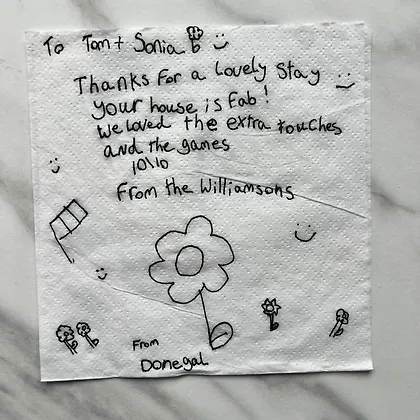 To Tom + Sonia
Thanks For a Lovely Stay
your house is Fab!
We Loved the extra touches
and the games
10/10
From the Williamsons
From
Donegal